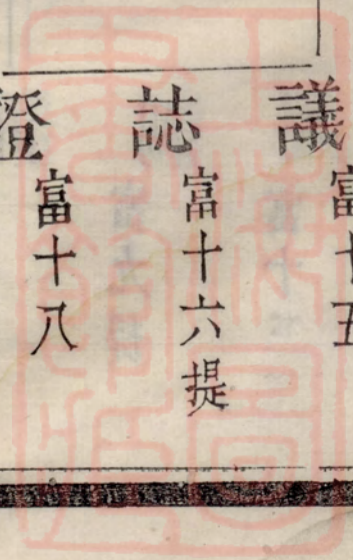 議 富十五
誌 富十六提
證 富十八